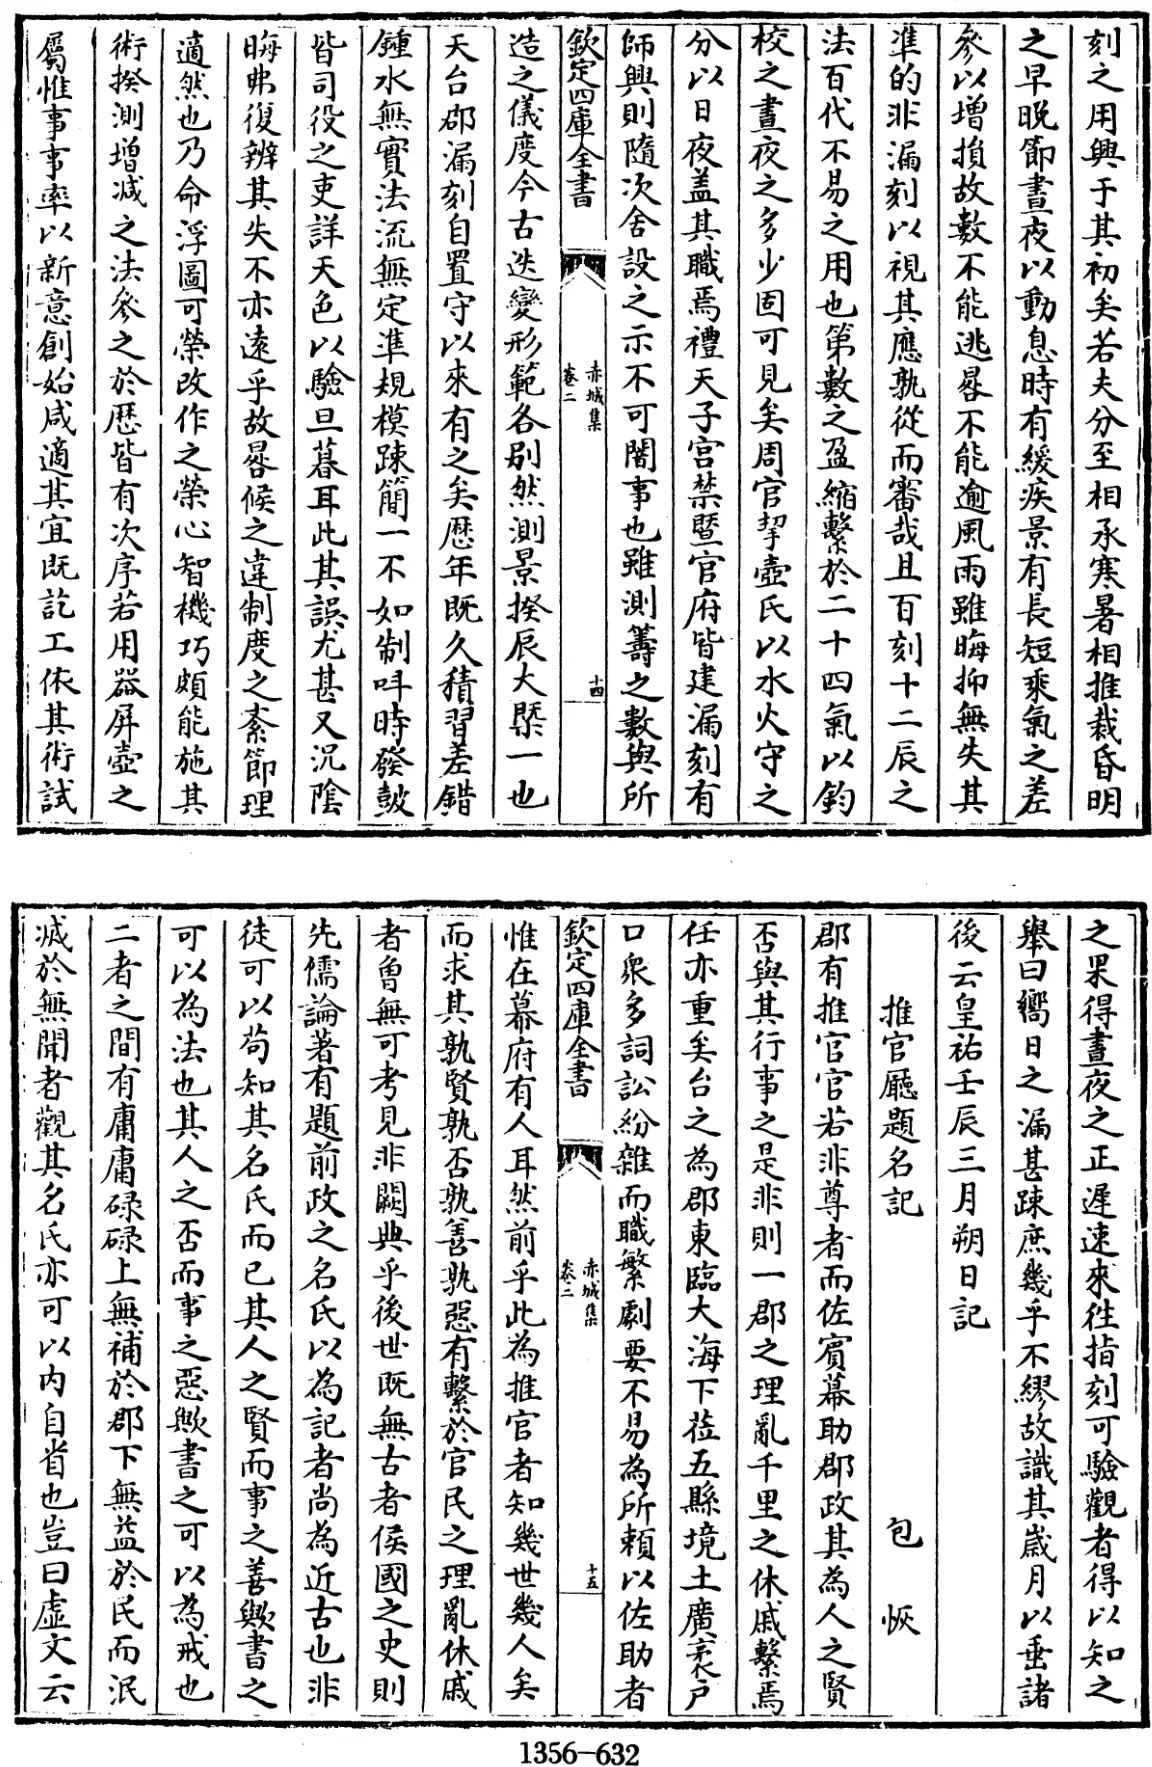 刻之用興于其初矣若夫分至相承寒暑相推裁昏明
之早晩節晝夜以動息時有緩疾景有長短乘氣之差
參以增損故數不能逃晷不能逾風雨雖晦抑無失其
準的非漏刻以視其應孰從而審哉且百刻十二辰之
法百代不易之用也第數之盈縮繫於二十四氣以鈞
校之晝夜之多少固可見矣周官挈壺氏以水火守之
分以日夜盖其職焉禮天子宮禁暨官府皆建漏刻有
師興則隨次舍設之示不可闇事也雖測籌之數與所
欽定四庫全書
赤城集
卷二
十四
造之儀度今古迭變形範各別然測景揆辰大槩一也
天台郡漏刻自置守以來有之矣歷年既久積習差錯
鍾水無實法流無定準規模踈簡一不如制呌時發皷
皆司役之吏詳天色以驗旦暮耳此其誤尤甚又沉陰
晦弗復辨其失不亦遠乎故晷候之違制度之紊節理
適然也乃命浮圖可榮改作之榮心智機巧頗能施其
術揆測增减之法參之於歷皆有次序若用器屏壺之
屬惟事事率以新意創始咸適其宜既訖工依其術試
之果得晝夜之正遲速來徃指刻可驗觀者得以知之
舉曰嚮日之漏甚踈庶幾乎不繆故識其嵗月以垂諸
後云皇祐壬辰三月朔日記
推官廳題名記
包恢
郡有推官官若非尊者而佐賓幕助郡政其為人之賢
否與其行事之是非則一郡之理亂千里之休戚繫焉
任亦重矣台之為郡東臨大海下莅五縣境土廣袤户
口衆多詞訟紛雜而職繁劇要不易為所頼以佐助者
欽定四庫全書
赤城集
卷二
十五
惟在幕府有人耳然前乎此為推官者知幾世幾人矣
而求其孰賢孰否孰善孰惡有繫於官民之理亂休戚
者魯無可考見非闕典乎後世既無古者侯國之史則
先儒論著有題前政之名氏以為記者尚為近古也非
徒可以苟知其名氏而已其人之賢而事之善歟書之
可以為法也其人之否而事之惡歟書之可以為戒也
二者之間有庸庸碌碌上無補於郡下無益於民而泯
滅於無聞者觀其名氏亦可以内自省也豈曰虚文云
1356-632